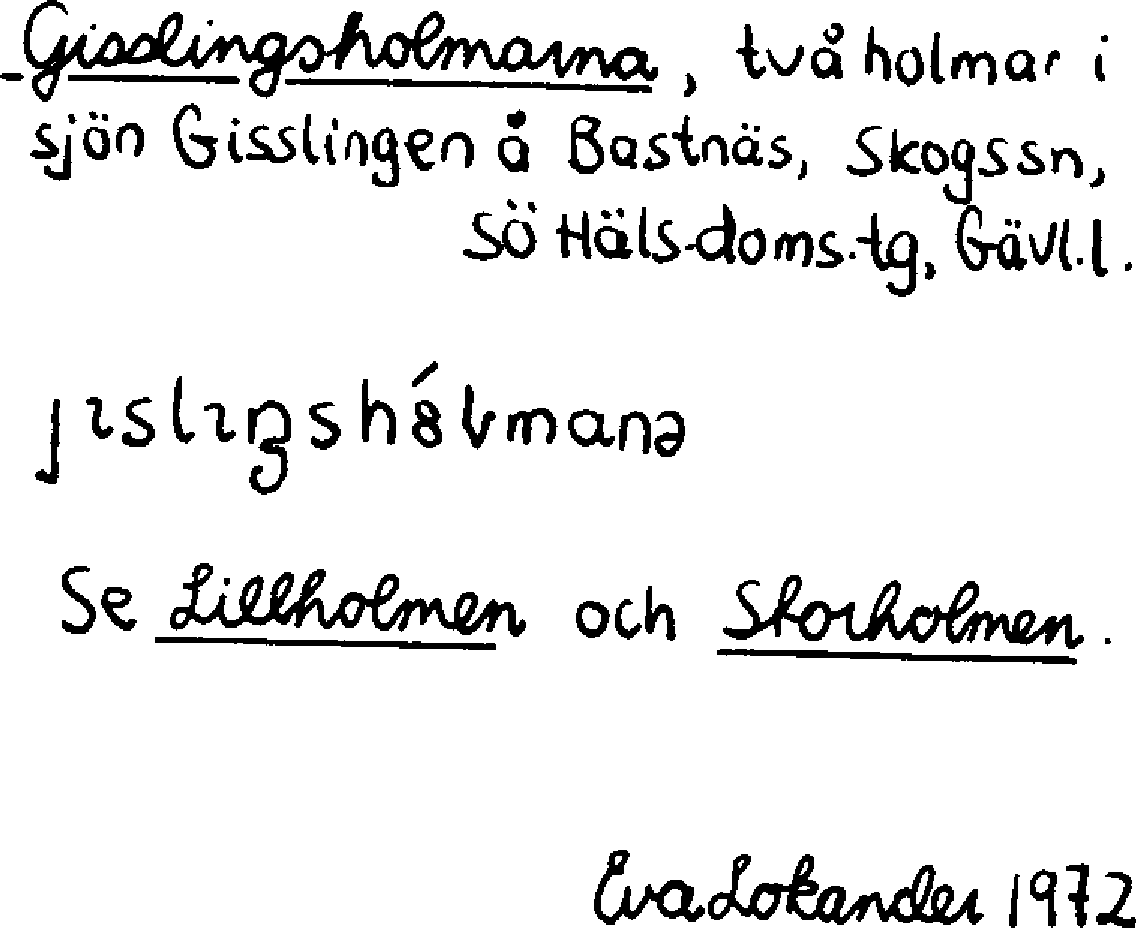 Gisslingsholmarna, två holmar i
sjön Gisslingen å Bastnäs, Skogssn,
SÖ Häls.doms.tg, Gävl.l.
ȷɪslɪŋshó̤ɭmanə
Se Lillholmen och Storholmen.
Eva Lokander 1972